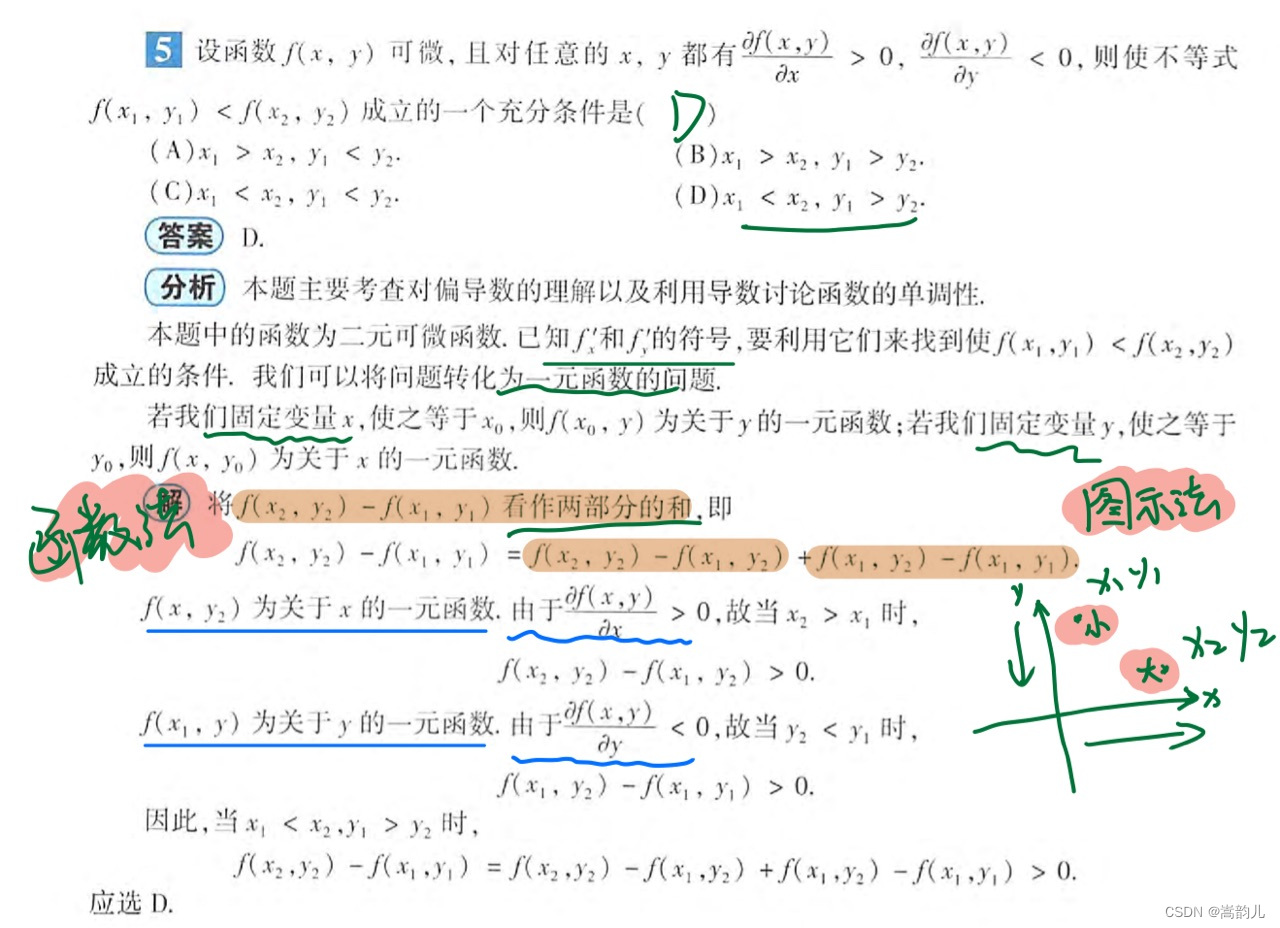 5 设函数 f(x, y) 可微,且对任意的 x, y 都有 ∂f(x,y)/∂x > 0, ∂f(x,y)/∂y < 0,则使不等式
f(x₁, y₁) < f(x₂, y₂) 成立的一个充分条件是( D )
(A) x₁ > x₂, y₁ < y₂. (B) x₁ > x₂, y₁ > y₂.
(C) x₁ < x₂, y₁ < y₂. (D) x₁ < x₂, y₁ > y₂.
答案 D.
分析 本题主要考查对偏导数的理解以及利用导数讨论函数的单调性.
本题中的函数为二元可微函数. 已知 f′ₓ和 f′ᵧ的符号,要利用它们来找到使 f(x₁,y₁) < f(x₂,y₂)
成立的条件. 我们可以将问题转化为一元函数的问题.
若我们固定变量 x,使之等于 x₀,则 f(x₀, y) 为关于 y 的一元函数;若我们固定变量 y,使之等于
y₀,则 f(x, y₀) 为关于 x 的一元函数.
函数法
解 将 f(x₂, y₂) − f(x₁, y₁) 看作两部分的和,即
图示法
f(x₂, y₂) − f(x₁, y₁) = f(x₂, y₂) − f(x₁, y₂) + f(x₁, y₂) − f(x₁, y₁).
f(x, y₂) 为关于 x 的一元函数. 由于 ∂f(x,y)/∂x > 0,故当 x₂ > x₁ 时,
y
x₁ y₁
小
x₂ y₂
大
x
f(x₂, y₂) − f(x₁, y₂) > 0.
f(x₁, y) 为关于 y 的一元函数. 由于 ∂f(x,y)/∂y < 0,故当 y₂ < y₁ 时,
f(x₁, y₂) − f(x₁, y₁) > 0.
因此,当 x₁ < x₂,y₁ > y₂ 时,
f(x₂,y₂) − f(x₁,y₁) = f(x₂,y₂) − f(x₁,y₂) + f(x₁,y₂) − f(x₁,y₁) > 0.
应选 D.
CSDN @嵩韵儿